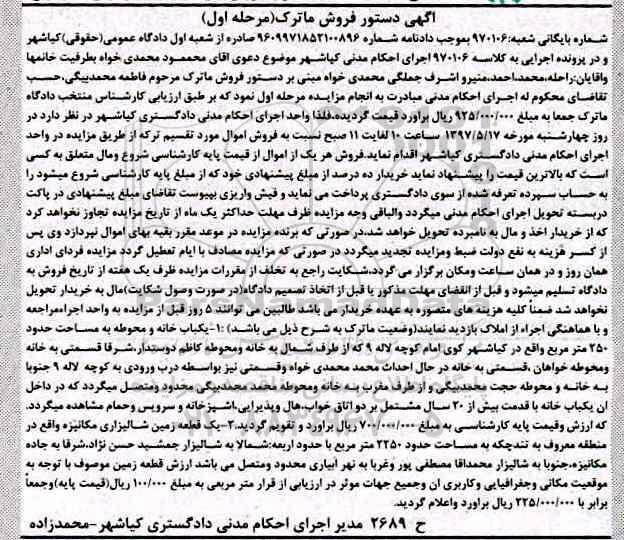 آگهی دستور فروش ماترک(مرحله اول)
شماره بایگانی شعبه:۹۷۰۱۰۶ بموجب دادنامه شماره ۹۶۰۹۹۷۱۸۵۲۱۰۰۸۹۶ صادره از شعبه اول دادگاه عمومی(حقوقی)کیاشهر
و در پرونده اجرایی به کلاسه ۹۷۰۱۰۶ اجرای احکام مدنی کیاشهر موضوع دعوی اقای محممود محمدی خواه بطرفیت خانمها
واقایان:راحله،محمد،احمد،منیرو اشرف جملگی محمدی خواه مبنی بر دستور فروش ماترک مرحوم فاطمه محمدبیگی،حسب
تقاضای محکوم له اجرای احکام مدنی مبادرت به انجام مزایده مرحله اول نمود که بر طبق ارزیابی کارشناس منتخب دادگاه
ماترک جمعا به مبلغ ۹۲۵/۰۰۰/۰۰۰ ریال براورد قیمت گردیده.فلذا واحد اجرای احکام مدنی دادگستری کیاشهر در نظر دارد در
روز چهارشنبه مورخه ۱۳۹۷/۵/۱۷ ساعت ۱۰ لغایت ۱۱ صبح نسبت به فروش اموال مورد تقسیم ترکه از طریق مزایده در واحد
اجرای احکام مدنی دادگستری کیاشهر اقدام نماید.فروش هر یک از اموال از قیمت پایه کارشناسی شروع ومال متعلق به کسی
است که بالاترین قیمت را پیشنهاد نماید خریدار ده درصد از مبلغ پیشنهادی خود که از مبلغ پایه کارشناسی شروع میشود را
به حساب سپرده تعرفه شده از سوی دادگستری پرداخت می نماید و فیش واریزی بپیوست تقاضای مبلغ پیشنهادی در پاکت
دربسته تحویل اجرای احکام مدنی میگردد والباقی وجه مزایده ظرف مهلت حداکثر یک ماه از تاریخ مزایده تجاوز نخواهد کرد
که از خریدار اخذ و مال به نامبرده تحویل خواهد شد.در صورتی که برنده مزایده در موعد مقرر بقیه بهای اموال نپردازد وی پس
از کسر هزینه به نفع دولت ضبط ومزایده تجدید میگردد در صورتی که مزایده مصادف با ایام تعطیل گردد مزایده فردای اداری
همان روز و در همان ساعت ومکان برگزار می گردد.شکایت راجع به تخلف از مقررات مزایده ظرف یک هفته از تاریخ فروش به
دادگاه تسلیم میشود و قبل از انقضای مهلت مذکور یا قبل از اتخاذ تصمیم دادگاه(در صورت وصول شکایت)مال به خریدار تحویل
نخواهد شد ضمناً کلیه هزینه های متصوره به عهده خریدار می باشد طالبین می توانند ۵ روز قبل از مزایده به واحد اجراءمراجعه
و با هماهنگی اجراء از املاک بازدید نمایند(وضعیت ماترک به شرح ذیل می باشد) :۱-یکباب خانه و محوطه به مساحت حدود
۲۵۰ متر مربع واقع در کیاشهر کوی امام کوچه لاله ۹ که از طرف شمال به خانه ومحوطه کاظم دوستدار،شرقا قسمتی به خانه
ومحوطه خواهان ،قسمتی به خانه در حال احداث محمد محمدی خواه وقسمتی نیز بواسطه درب ورودی به کوچه لاله ۹ جنوبا
به خانه و محوطه حجت محمدبیگی و از طرف مغرب به خانه ومحوطه محمدمحمدبیگی محدود ومتصل میگردد که در داخل
ان یکباب خانه با قدمت بیش از ۲۰ سال مشتمل بر دو اتاق خواب،هال وپذیرایی،اشپزخانه و سرویس وحمام مشاهده میگردد.
که ارزش وقیمت پایه کارشناسی به مبلغ ۷۰۰/۰۰۰/۰۰۰ ریال براورد و تقویم گردید.۲-یک قطعه زمین شالیزاری مکانیزه واقع در
منطقه معروف به تندچکه به مساحت حدود ۲۲۵۰ متر مربع با حدود اربعه:شمالا به شالیزار جمشید حسن نژاد،شرقا به جاده
مکانیزه،جنوبا به شالیزار محمداقا مصطفی پور وغربا به نهر ابیاری محدود ومتصل می باشد ارزش قطعه زمین موصوف با توجه به
موقعیت مکانی وجغرافیایی وکاربری ان وجمیع جهات موثر در ارزیابی از قرار متر مربعی به مبلغ ۱۰۰/۰۰۰ ریال(قیمت پایه)وجمعاً
برابر با ۲۲۵/۰۰۰/۰۰۰ ریال براورد واعلام گردید.
ح ۲۶۸۹ مدیر اجرای احکام مدنی دادگستری کیاشهر-محمدزاده
ParsNamadData